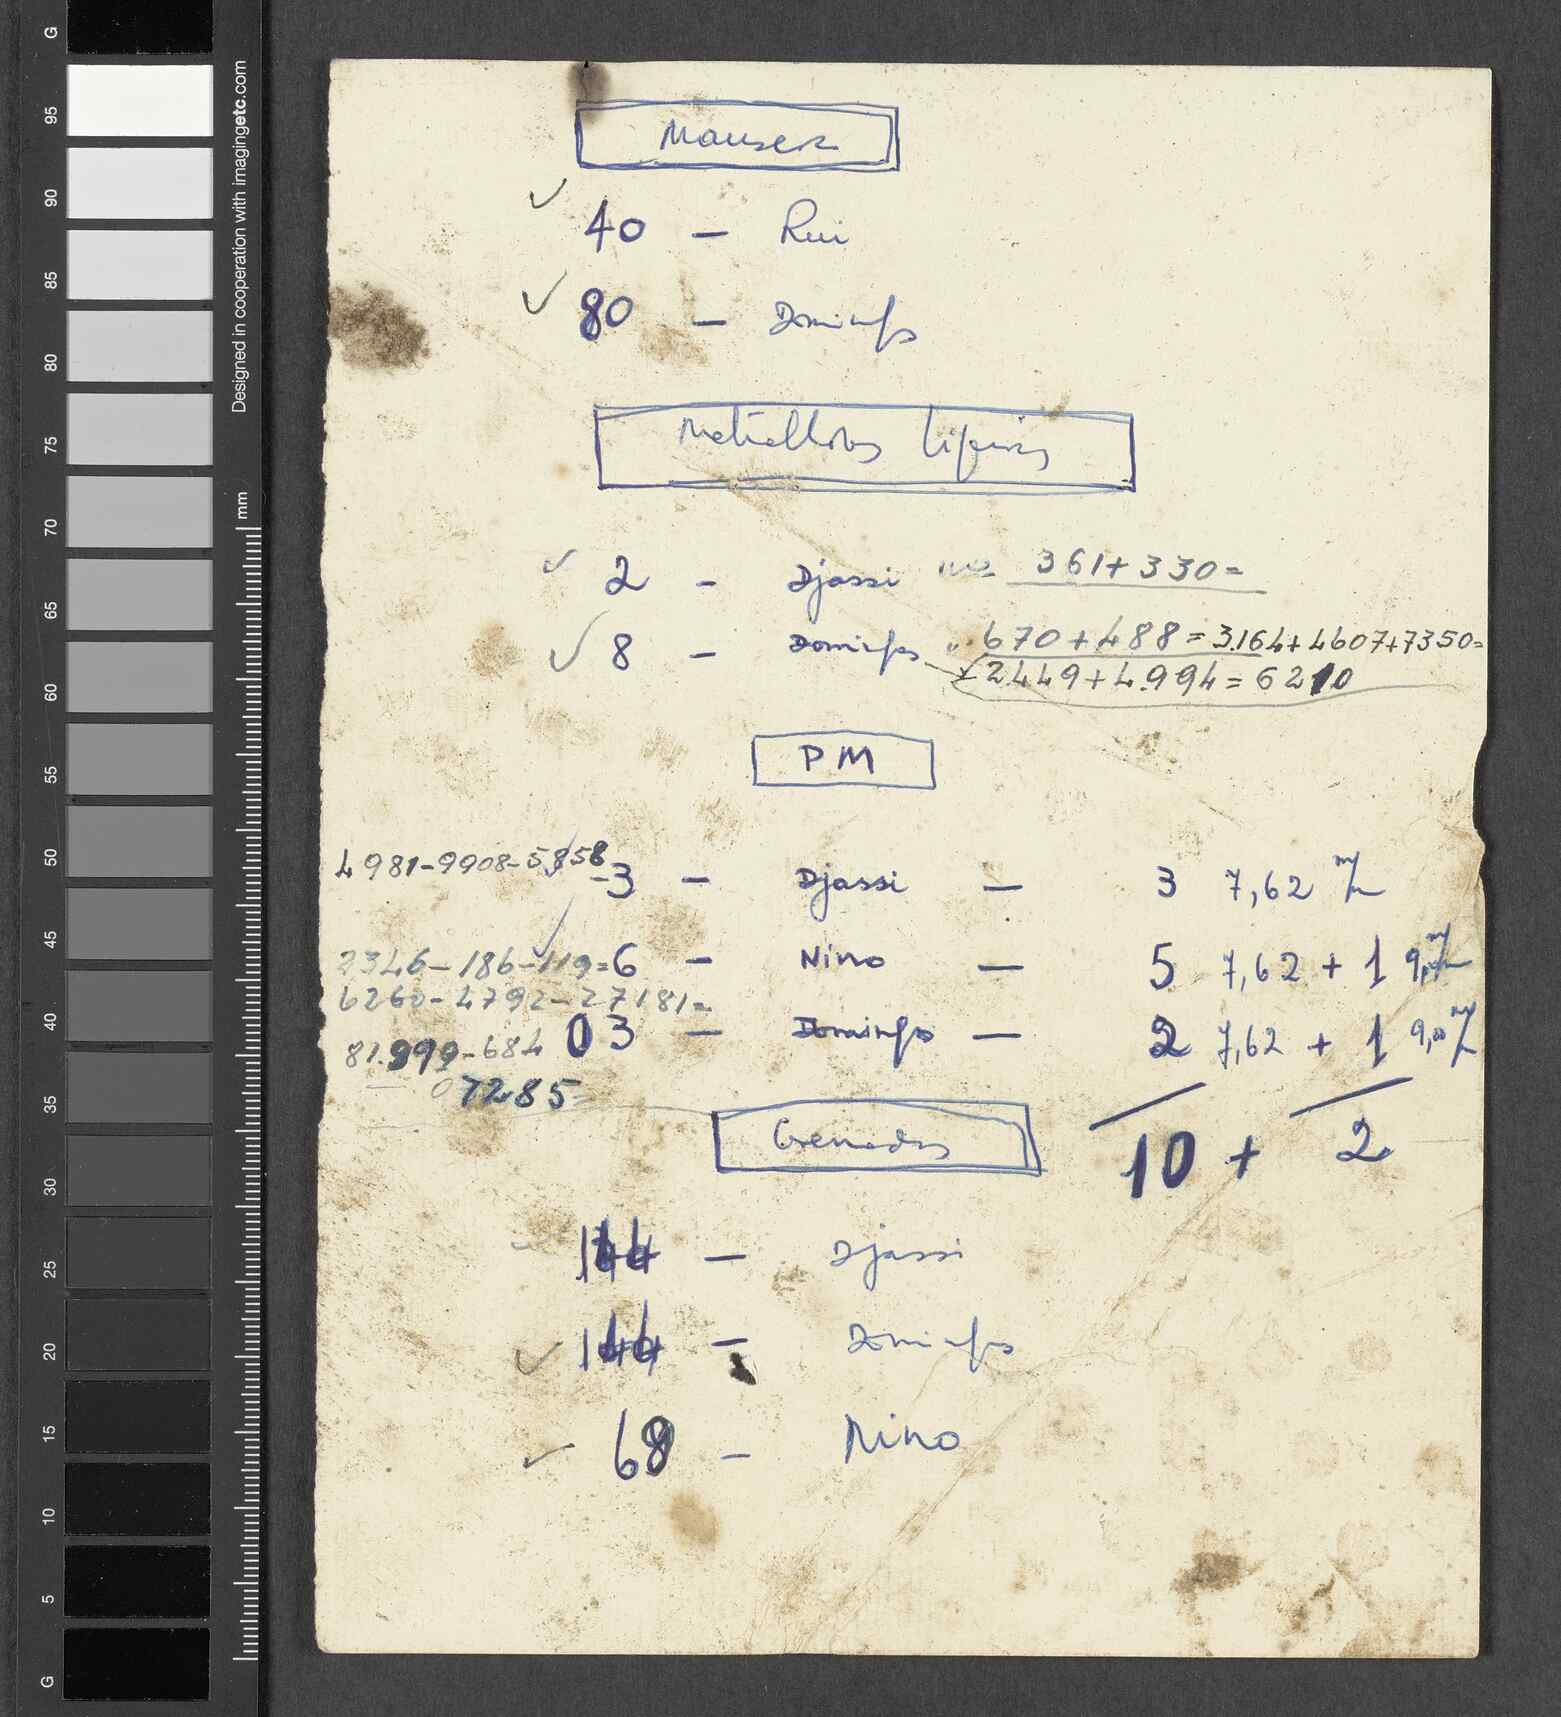 Mauser
✓ 40 — Rui
✓ 80 — Domingos
Metralhadoras ligeiras
✓ 2 - Djassi nos 361+330=
✓ 8 - Domingos " 670+488=3.164+4607+7350=
2449+4.994=6210
PM
4981-9908-5858-3 - Djassi — 3 7,62 m/m
2346-186-119=6 - Nino — 5 7,62 + 1 9, m/m
6260-4792-27181=
81.999-684 03 - Domingos — 2 7,62 + 1 9,00 m/m
07285=
10 + 2
Grenadas
144 — Djassi
✓ 144 — Domingos
✓ 68 — Nino
G
95
90
85
80
75
70
65
60
55
50
45
40
35
30
25
20
15
10
5
G
Designed in cooperation with imagingetc.com
mm